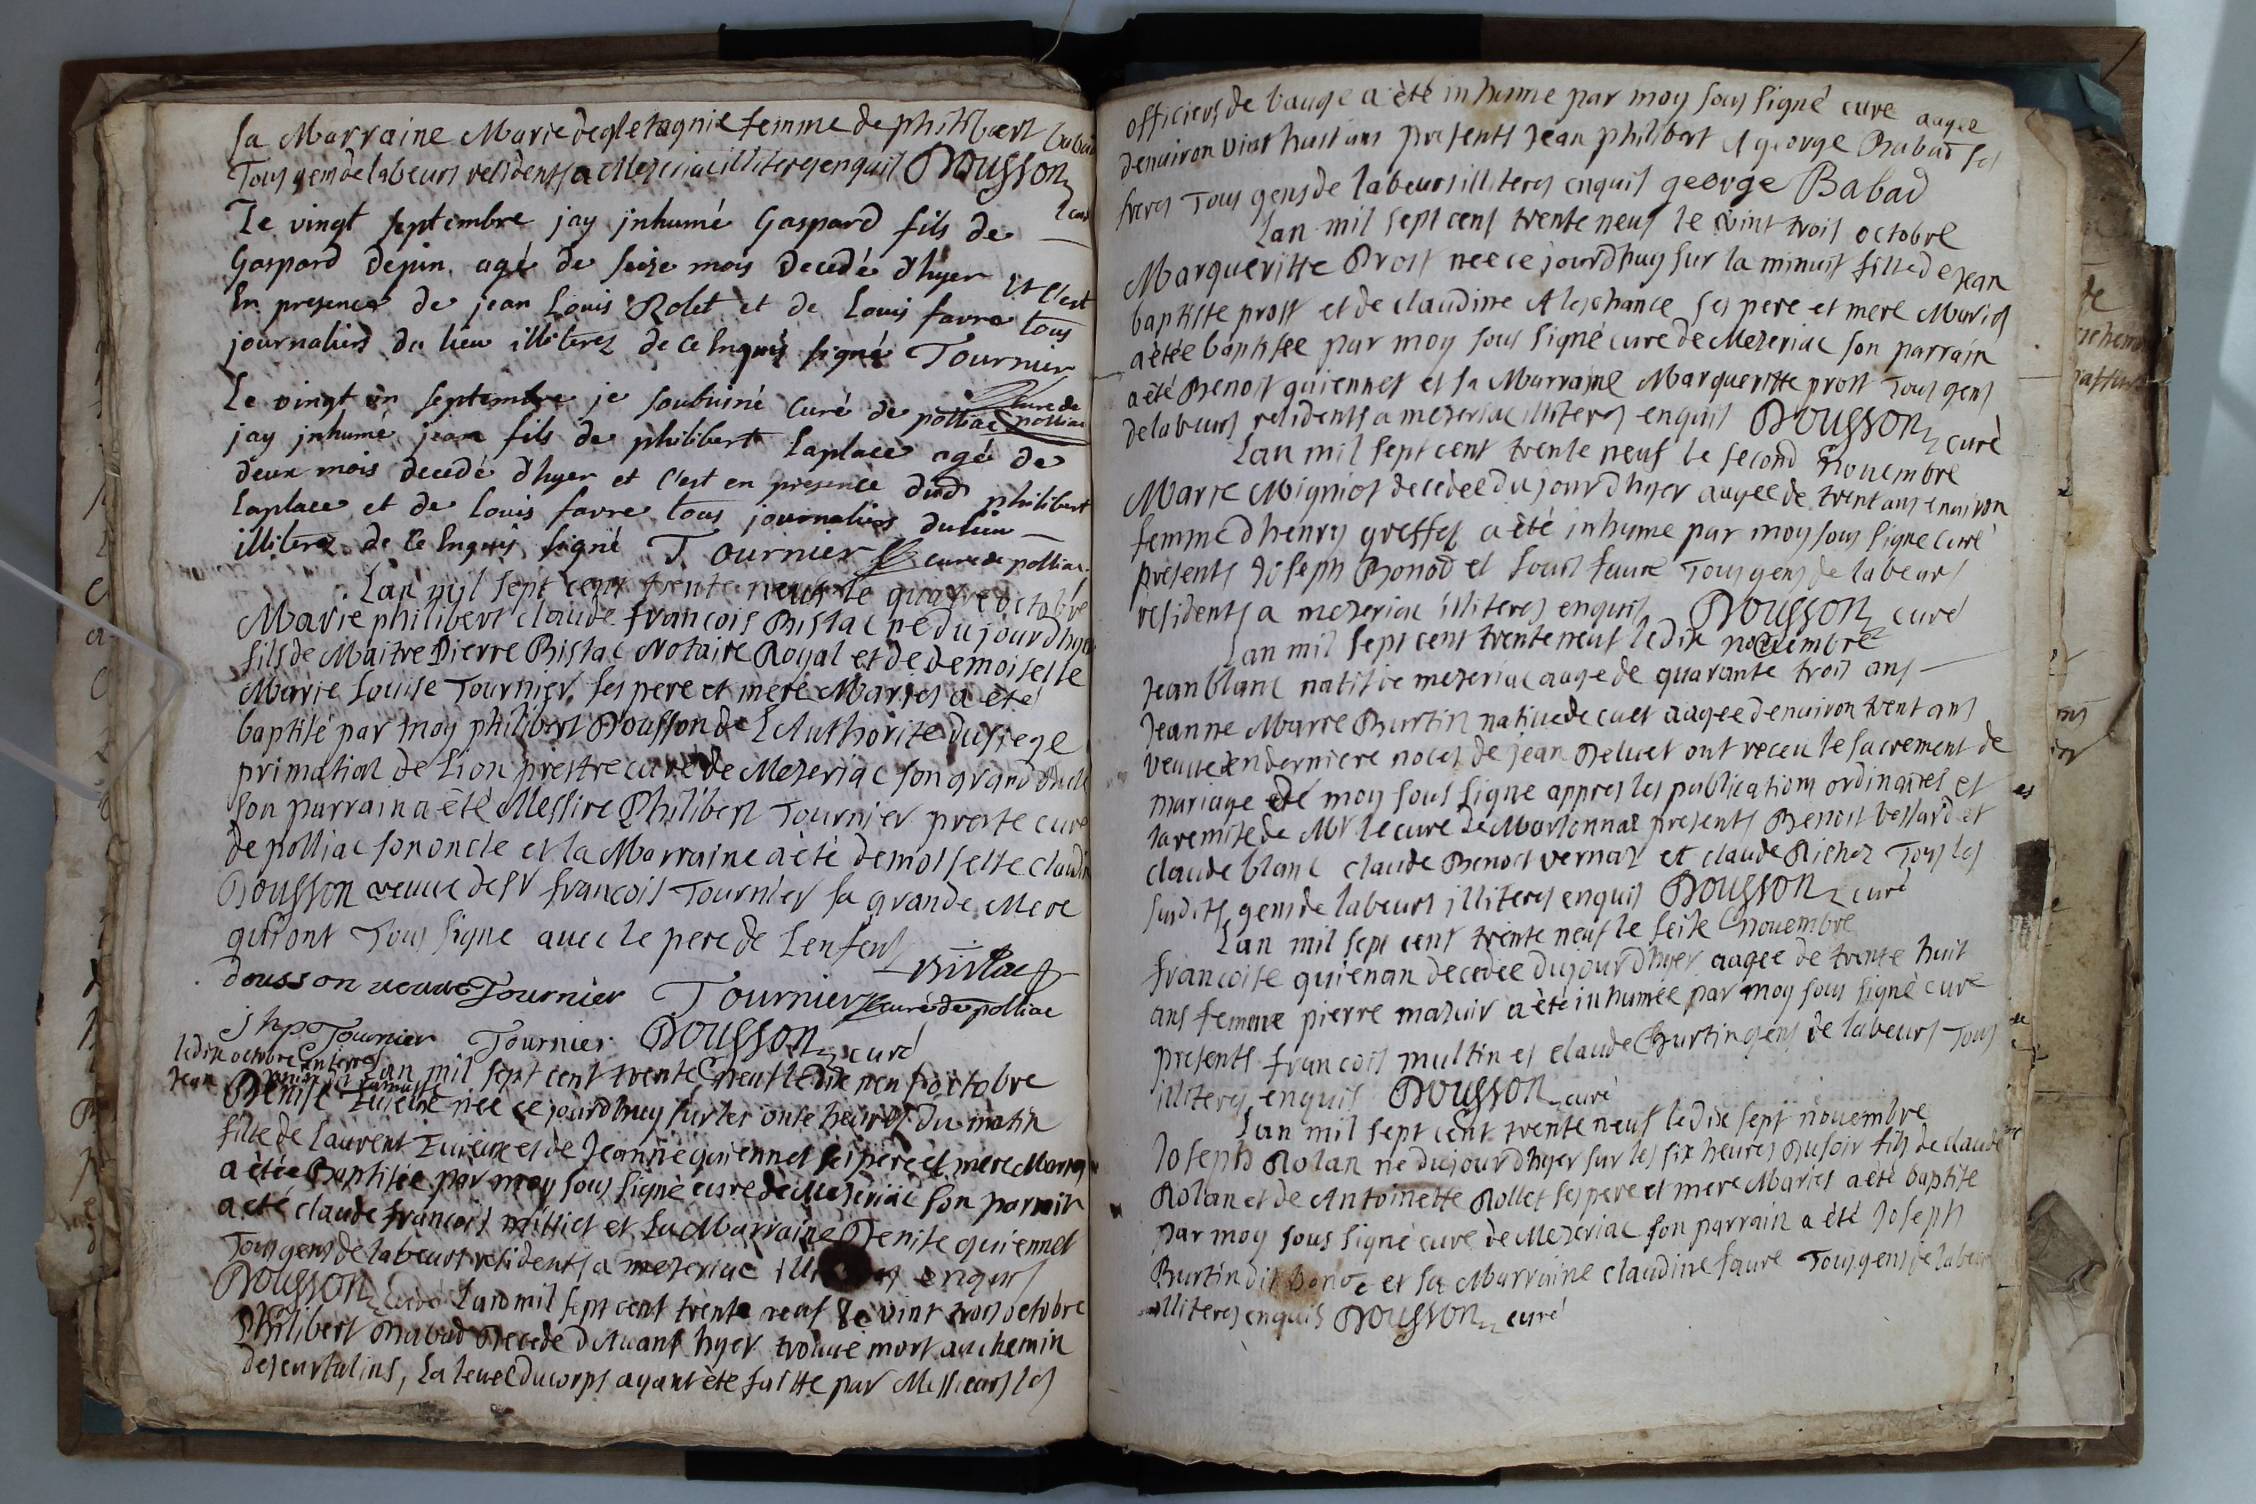 sa Marraine Marie degletagnie femme de philibert babad
Tous gens de labeurs residents a Mezeriac illiteres enquis Dousson
curé
Le vingt septembre jay jnhumé Gaspard fils de
Gaspard depin agé de seize mois decedé d'hyer et c'est
En presence de jean Louis Rolet et de Louis favre tous
journaliers du lieu illiterez de ce Enquis signé Tournier
curé de polliac
Le vingt un septembre je soubsiné curé de polliac
jay jnhumé jean fils de philibert Laplace agé de
deux mois decedé d'hyer et c'est en presence dud philibert
Laplace et de Louis favre tous journaliers du lieu
illiterez de ce Enquis signé Tournier curé de polliac
Lan mil sept cent trente neuf le quatre octobre
Marie philibert claude francois Bistac né du jourdhyer
fils de Maitre Pierre Bistac Notaire Royal et de demoiselle
Marie Louise Tournier ses pere et mere Maries a été
baptisé par moy philibert Dousson de L'Authorité du siege
primatial de Lion prestre curé de Mezeriac son grand oncle
son parrain a été Messire Philibert Tournier prestre curé
de polliac son oncle et la Marraine a été demoiselle claudine
Dousson veuve de sr francois Tournier sa grande Mere
qui ont Tous signe avec le pere de Lenfent
Bistac
dousson veuve Tournier Tournier curé de polliac
jhpo Tournier Tournier Dousson curé
le dix octobre enterré
jean
Lan mil sept cent trente neuf le dix neuf octobre
Denise née ce jourdhuy sur les onze heures du matin
fille de Laurent et de Jeanne quiennet ses pere et mere Maries
a étée Baptisée par moy sous signé curé de Mezeriac son parrain
a eté claude francois milliet et sa Marraine Denise quiennet
Tous gens de labeurs residents a mezeriac enquis
Dousson curé Lan mil sept cent trente neuf le vint trois octobre
Philibert Babad decede davant hyer trouvé mort au chemin
des curtalins, La levée du corps ayant été faitte par Messieurs les
officiers de bauge a été inhume par moy sous signé cure aagee
denviron vint huit ans presents Jean philibert & george Babad ses
freres Tous gens de labeurs illiteres enquis george Babad
Lan mil sept cent trente neuf le vint trois octobre
Margueritte Prost nee ce jourdhuy sur la minuit fille de Jean
baptiste prost et de claudine Aleschance ses pere et mere Maries
a étée baptisée par moy sous signé cure de Mezeriac son parrain
a été Benoit quiennet et sa Marraine Margueritte prost Tous gens
de labeurs residents a mezeriac illiteres enquis Dousson curé
Lan mil sept cent trente neuf le second Novembre
Marie Migniot decedee du jourdhyer aagee de trent ans environ
femme dhenry greffet a été inhume par moy sous signe curé
presents Joseph Bonod et Louis faure Tous gens de labeurs
residents a mezeriac illiteres enquis Dousson curé
Lan mil sept cent trente neuf le dix novembre
Jean blanc natif de mezeriac aage de quarante trois ans
Jeanne Marie Burtin native de cuet aagee denviron trent ans
veuve en derniere noces de jean Beluet ont receu le sacrement de
mariage de moy sous signe appres les publications ordinaires et
la remise de Mr le cure de Marsonnas presents Benoit bellard et
claude blanc claude Benoit vernaz et claude Richez Tous les
susdits gens de labeurs illiteres enquis Dousson curé
Lan mil sept cent trente neuf le seize novembre
francoise quienan decedee du jourdhyer aagee de trente huit
ans femme pierre mazuir a été inhumée par moy sous signé cure
presents francois multin et claude Burtin gens de labeurs Tous
illiteres enquis Dousson curé
Lan mil sept cent trente neuf le dix sept novembre
Joseph Rolan né du jourdhyer sur les six heures du soir fils de claude
Rolan et de Antoinette Rollet ses pere et mere Maries a été baptisé
par moy sous signé curé de Mezeriac son parrain a été Joseph
Burtin dit et sa Marraine claudine faure Tous gens de labeur
illiteres enquis Dousson curé